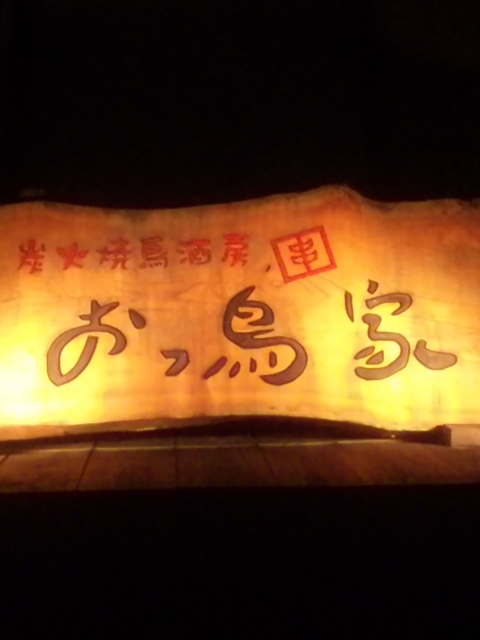 炭火焼鳥酒房 串
おっ鳥家